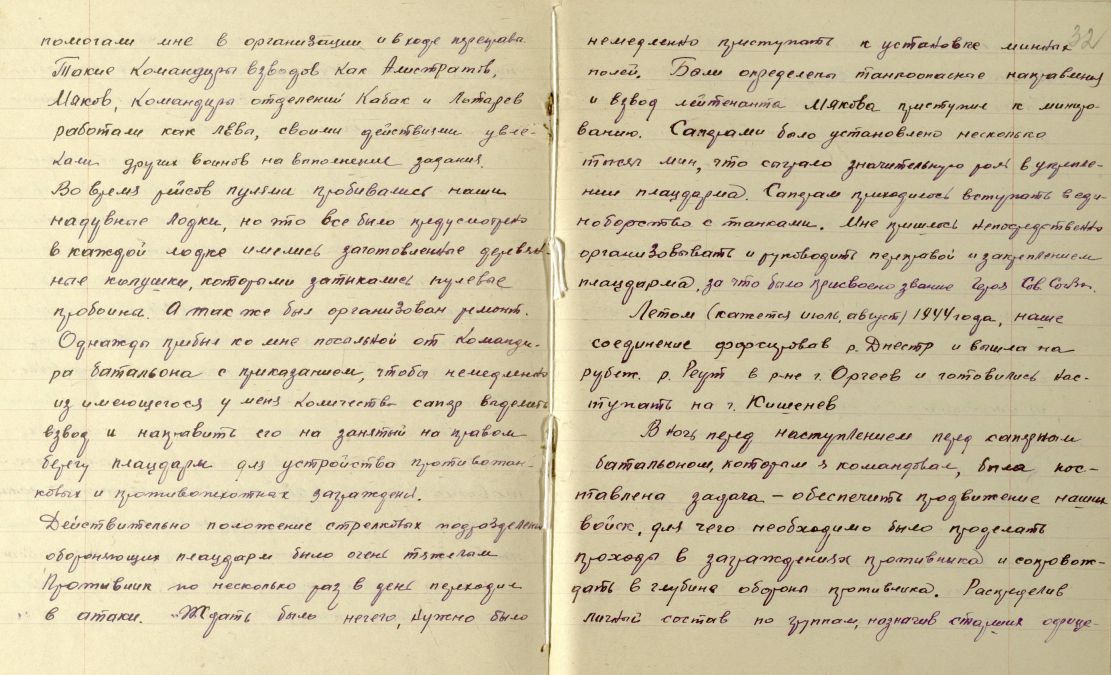 помогали мне в организации и в ходе переправы.
Такие командиры взводов как Алистратов,
Мяков, командиры отделений Кабак и Лотарев
работали как Лева, своими действиями увле-
кали других воинов на выполнение задания.
Во время рейсов пулями пробивались наши
надувные лодки, но это все было предусмотрено
в каждой лодке имелись заготовленные деревян-
ные колушки, которыми затыкались пулевые
пробоины. А так же был организован ремонт.
Однажды прибыл ко мне посыльной от команди-
ра батальона с приказанием, чтобы немедленно
из имеющегося у меня количества сапер выделить
взвод и направить его на занятый на правом
берегу плацдарм для устройства противотан-
ковых и противопехотных заграждений.
Действительно положение стрелковых подразделений
обороняющих плацдарм было очень тяжелым
Противник по несколько раз в день переходил
в атаки. Ждать было нечего, нужно было
32
немедленно приступать к установке минных
полей. Были определены танкоопасные направления
и взвод лейтенанта Мякова приступил к миниро-
ванию. Саперами было установлено несколько
тысяч мин, что сыграло значительную роль в укрепле-
нии плацдарма. Саперам приходилось вступать в еди-
ноборство с танками. Мне пришлось непосредственно
организовывать и руководить переправой и закреплением
плацдарма, за что было присвоено звание Героя Сов. Союза.
Летом (кажется июль, август) 1944 года, наше
соединение форсировав р. Днестр и вышла на
рубеж р. Реут в р-не г. Оргеев и готовились нас-
тупать на г. Кишенев
В ночь перед наступлением перед саперным
батальоном, которым я командовал, была пос-
тавлена задача – обеспечить продвижение наших
войск, для чего необходимо было проделать
проходы в заграждениях противника и сопровож-
дать в глубина обороны противника. Распределив
личный состав по группам, назначив старших офице-